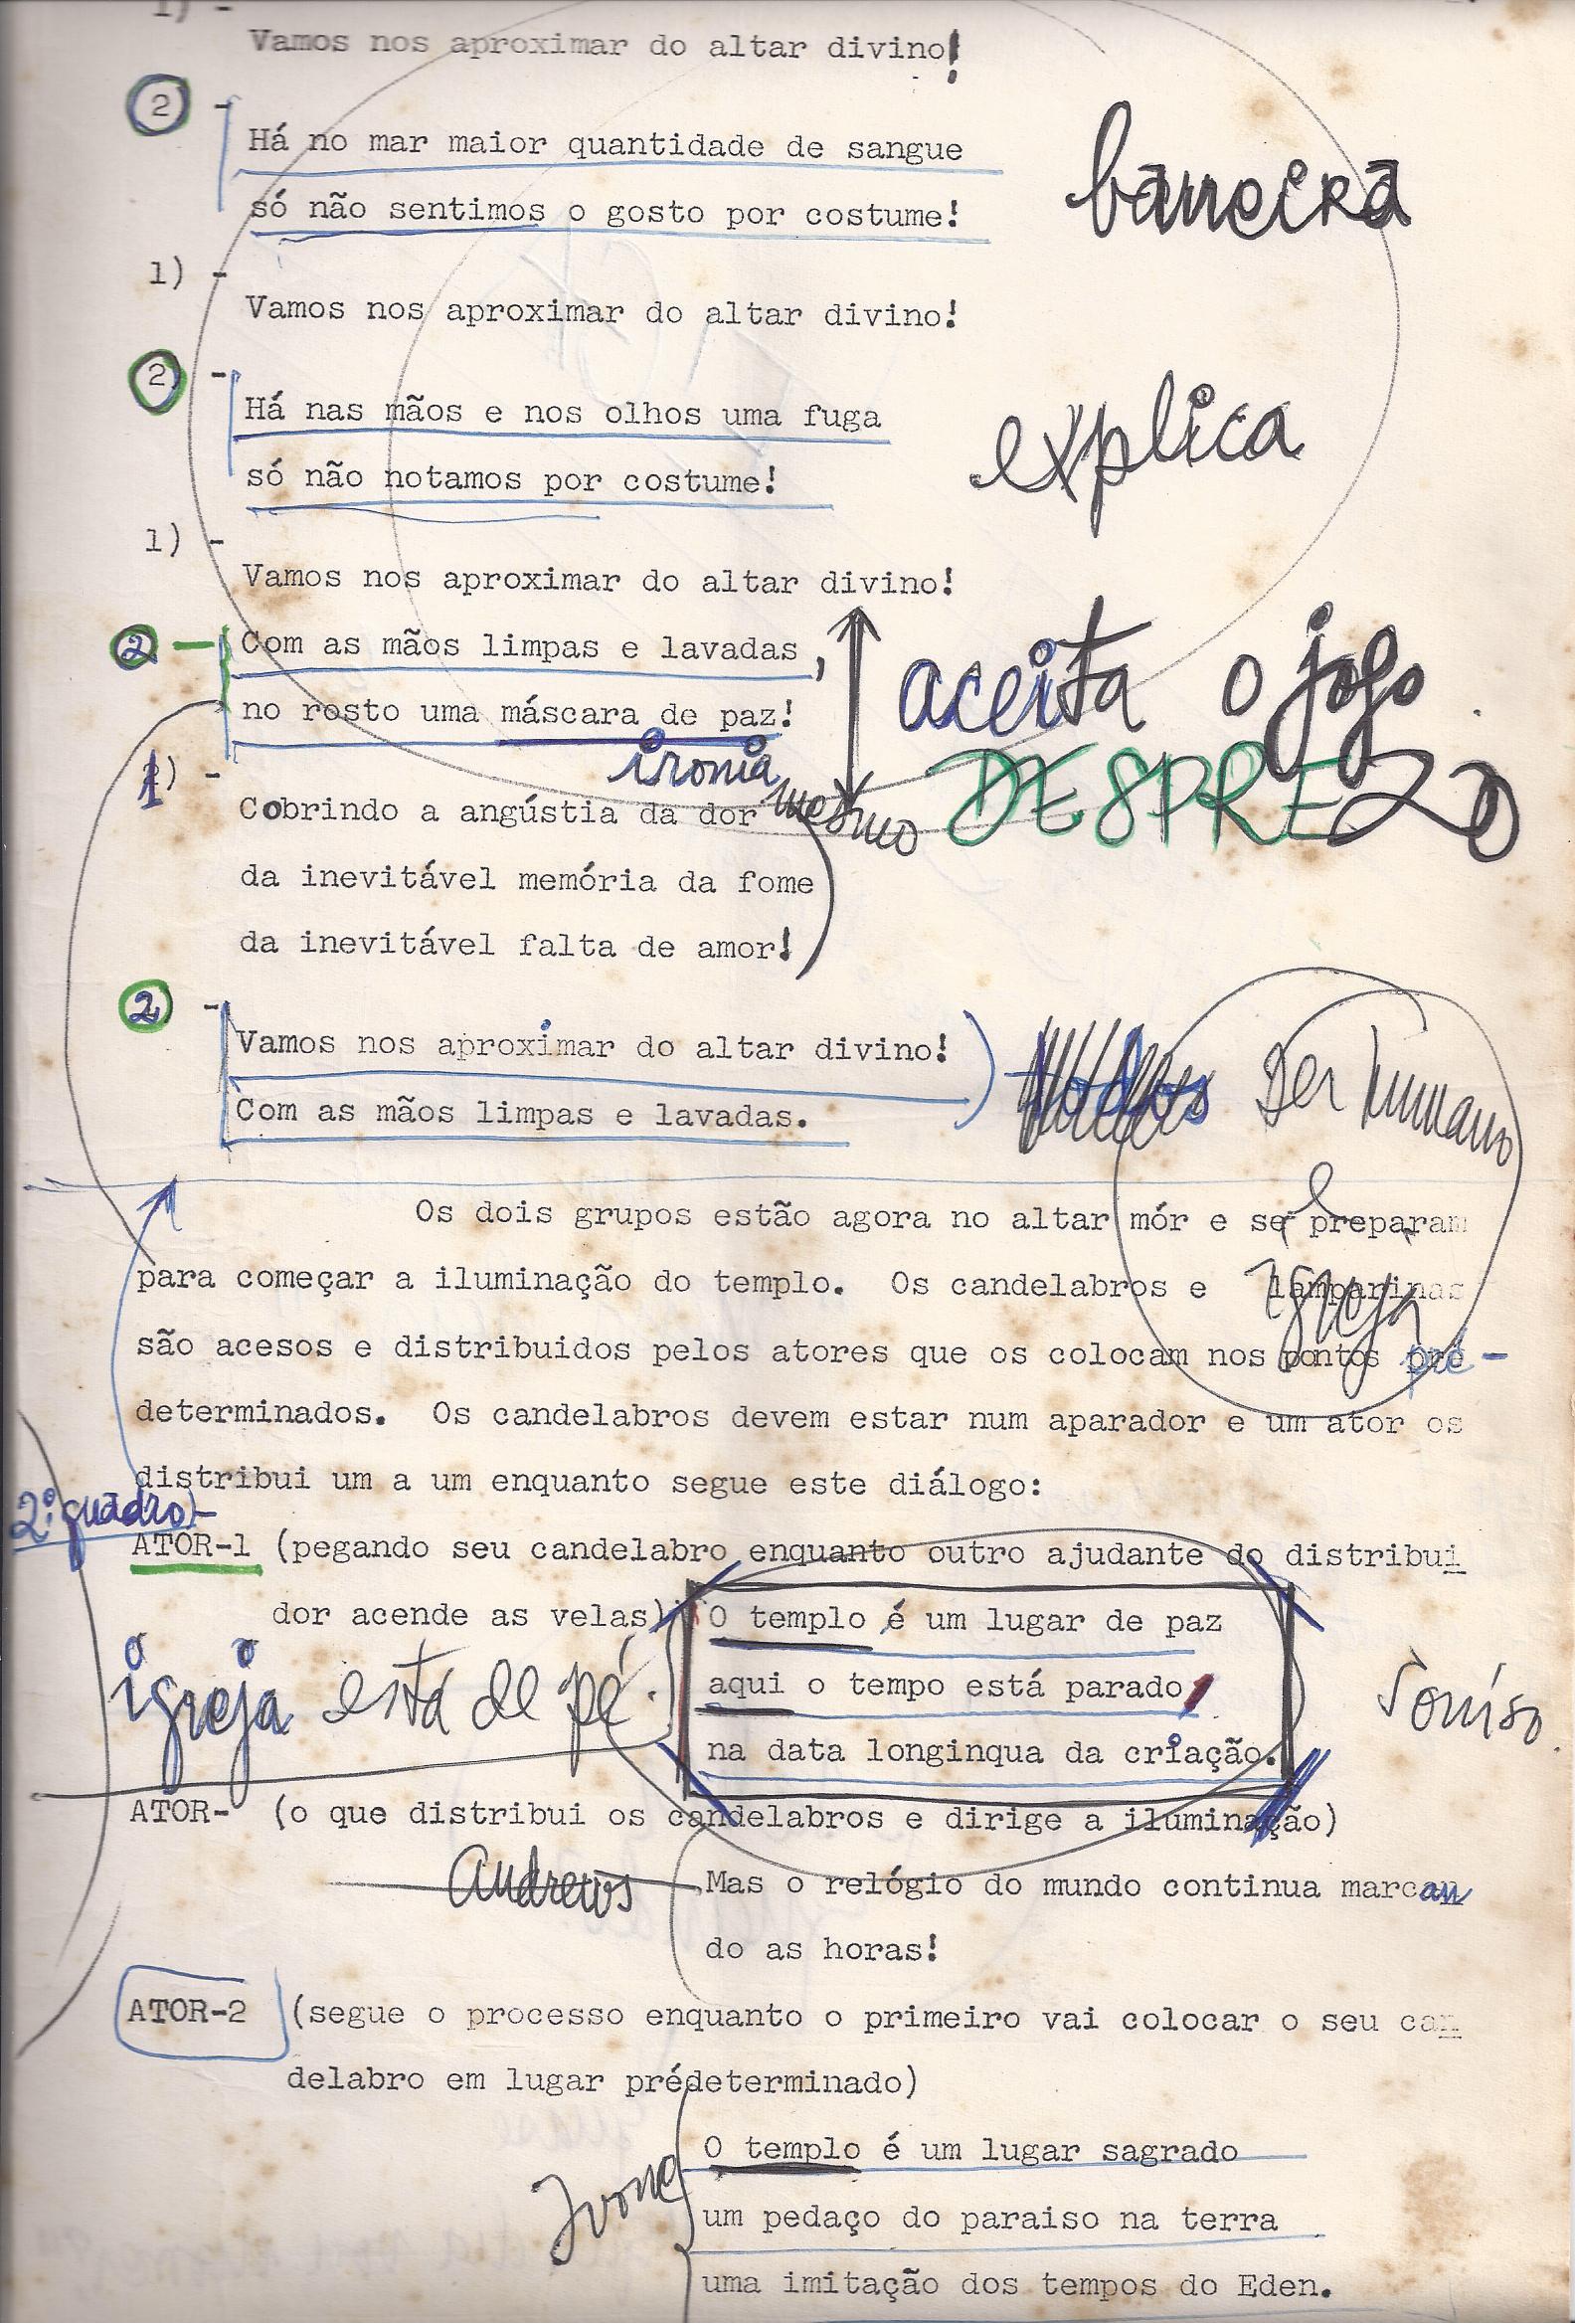 1) -
Vamos nos aproximar do altar divino!
2 -
Há no mar maior quantidade de sangue
barreira
só não sentimos o gosto por costume!
1) -
Vamos nos aproximar do altar divino!
2) -
Há nas mãos e nos olhos uma fuga
explica
só não notamos por costume!
1) -
Vamos nos aproximar do altar divino!
2 - Com as mãos limpas e lavadas,
aceita o jogo
no rosto uma máscara de paz!
ironia mesmo
DESPREZO
1) -
Cobrindo a angústia da dor
da inevitável memória da fome
da inevitável falta de amor!
2) -
Vamos nos aproximar do altar divino!
todos Ser humano
Com as mãos limpas e lavadas.
e
Igreja
Os dois grupos estão agora no altar mór e se preparam
para começar a iluminação do templo. Os candelabros e lamparinas
são acesos e distribuidos pelos atores que os colocam nos pontos pré-
determinados. Os candelabros devem estar num aparador e um ator os
distribui um a um enquanto segue este diálogo:
2º quadro-
ATOR-1 (pegando seu candelabro enquanto outro ajudante do distribui
dor acende as velas) O templo é um lugar de paz
igreja está de pé.
aqui o tempo está parado,
Sorriso.
na data longinqua da criação.
ATOR- (o que distribui os candelabros e dirige a iluminação)
Andrews
Mas o relógio do mundo continua marcan
do as horas!
ATOR-2 (segue o processo enquanto o primeiro vai colocar o seu can
delabro em lugar prédeterminado)
Ivone
O templo é um lugar sagrado
um pedaço do paraiso na terra
uma imitação dos tempos do Eden.